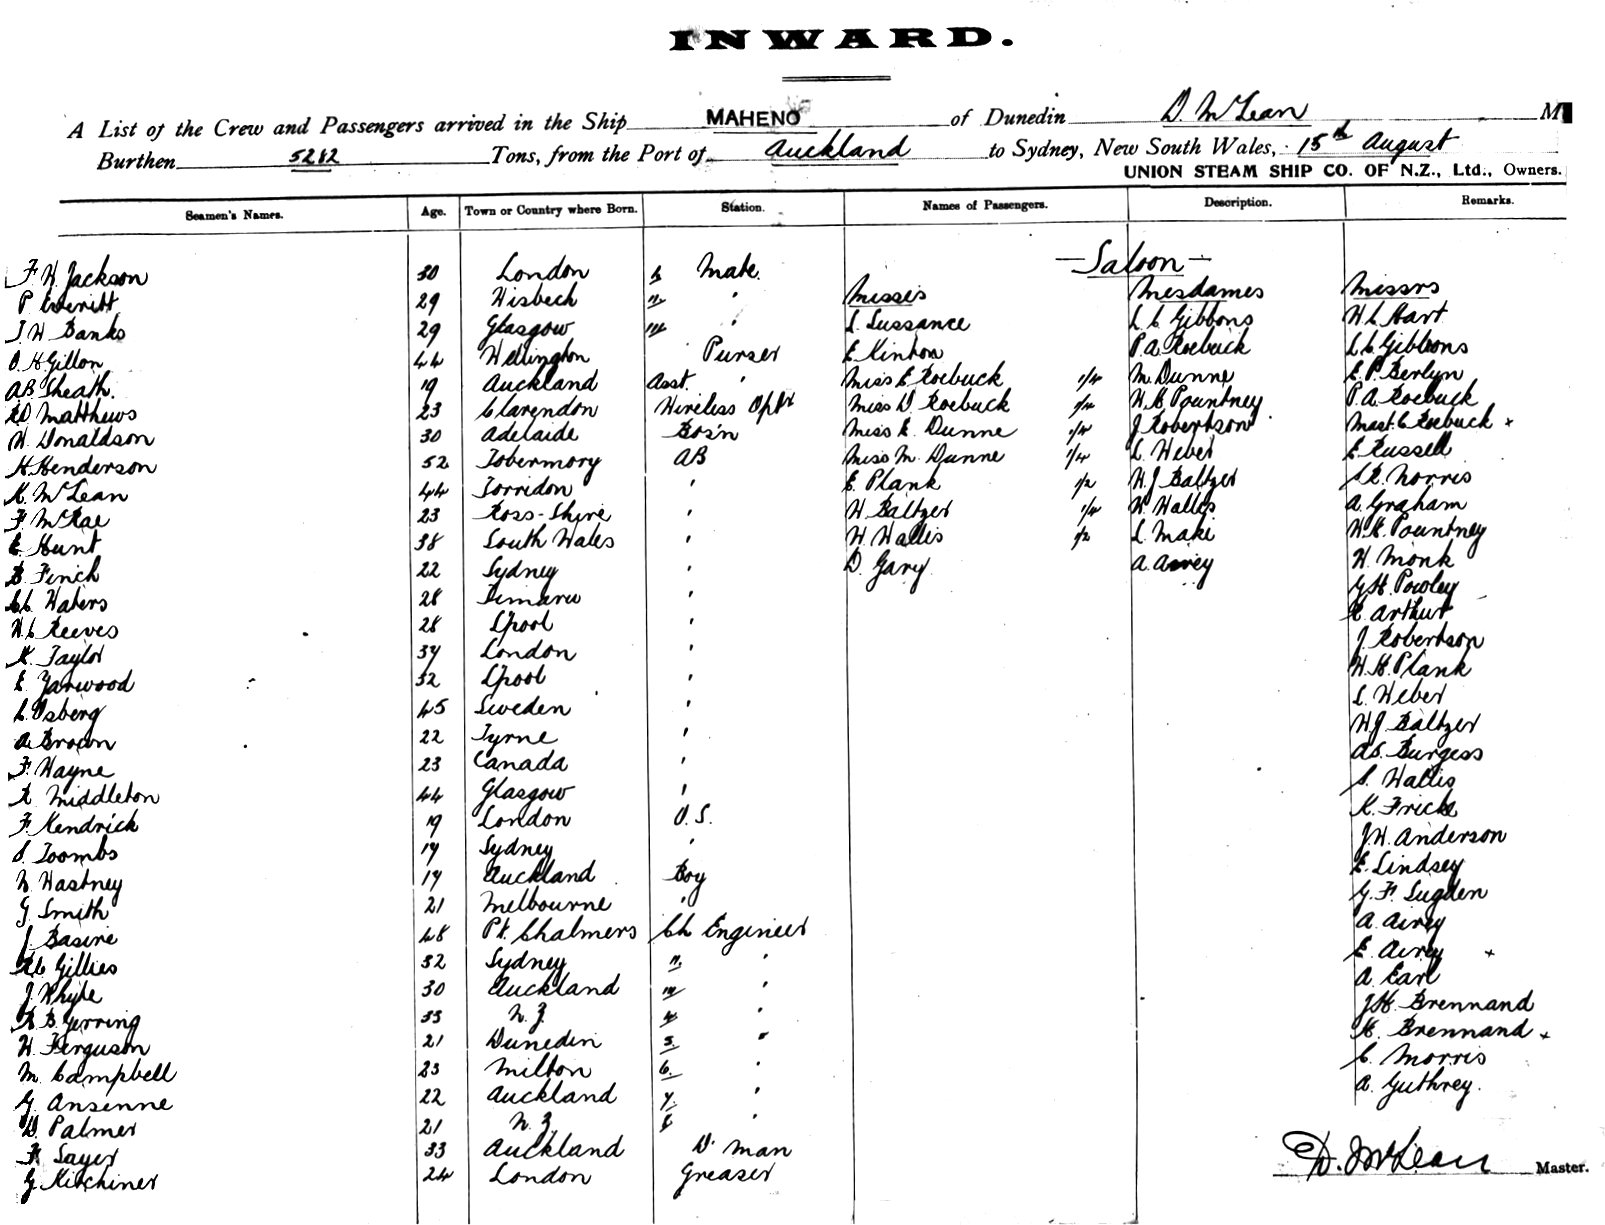 INWARD.
A List of the Crew and Passengers arrived in the Ship MAHENO of Dunedin D. McLean M
Burthen 5282 Tons, from the Port of Auckland to Sydney, New South Wales, 15th August
UNION STEAM SHIP CO. OF N.Z., Ltd., Owners.
Seamen's Names. Age. Town or Country where Born. Station. Names of Passengers. Description. Remarks.
—Saloon—
F W Jackson 30 London Mate.
P Everitt 29 Wisbech " ' Misses Mesdames Messrs
J W Banks 29 Glasgow ''' ' L Sussance L C Gibbons W L Hart
O H Gillon 44 Wellington Purser E Kinton P. A. Roebuck L C Gibbons
AB Sheath. 19 Auckland Asst. ' Miss E Roebuck 1/4 M Dunne E. P. Berlyn
RD Matthews 23 Clarendon Wireless Optr Miss D. Roebuck 1/4 W E Pountney P. A Roebuck
W Donaldson 30 Adelaide Bos'n Miss K. Dunne 1/4 J Robertson Mast. C Roebuck +
H Henderson 52 Tobermory AB Miss M. Dunne 1/4 L. Weber E Russell
K. McLean 44 Torridon ' E. Plank 1/2 W. J Baltzer Norris
F McRae 23 Ross-Shire ' W Baltzer 1/4 W Wallis A. Graham
E Hunt 38 South Wales ' W. Wallis 1/2 L Maki W. E. Pountney
B. Finch 22 Sydney ' D. Gary A. Airey W. Monk
Waters 28 Timaru ' G H. Powley
W. L Reeves 28 L'pool ' R Arthur
K. Taylor 37 London ' J Robertson
E Yarwood 32 L'pool ' W. H. Plank
L. Osberg 45 Sweden ' L. Weber
A. Brown 22 Tyrne ' W J Baltzer
F. Wayne 23 Canada ' A S. Burgess
R Middleton 44 Glasgow ' S. Wallis
F. Kendrick 19 London O.S. K. Frick
S. Toombs 17 Sydney ' J. W. Anderson
N Wastney 17 Auckland Boy E. Lindsey
G Smith 21 Melbourne ' G. F. Sugden
J Basire 48 Pt. Chalmers Ch Engineer A. Airey
R C Gillies 32 Sydney " ' E. Airey +
J Whyte 30 Auckland ''' ' A Earl
R B. Gerring 33 N. Z. 4 ' J H. Brennand
W. Ferguson 21 Dunedin 5. " H. Brennand +
M. Campbell 23 Milton 6. ' C. Morris
G. Ansenne 22 Auckland 7. ' A Guthrey.
D. Palmer 21 N. Z. 8 '
F Sayer 33 Auckland D' man
G Kitchiner 24 London Greaser
D. McLean Master.